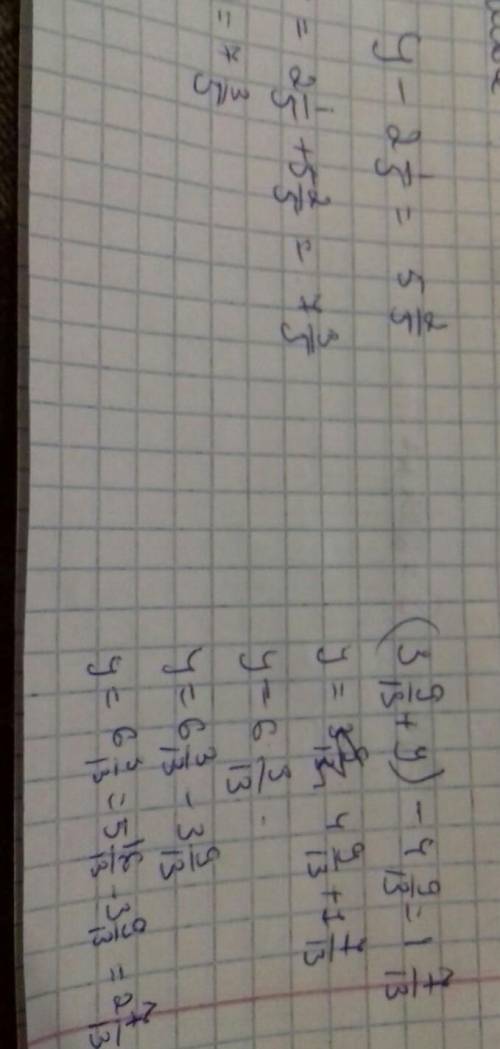 y - 2 1/5 = 5 2/5
= 2 1/5 + 5 2/5 = 7 3/5
= 7 3/5
(3 9/13 + y) - 4 9/13 = 1 7/13
y = 4 9/13 + 1 7/13
y = 6 3/13
y = 6 3/13 - 3 9/13
y = 6 3/13 = 5 16/13 - 3 9/13 = 2 7/13